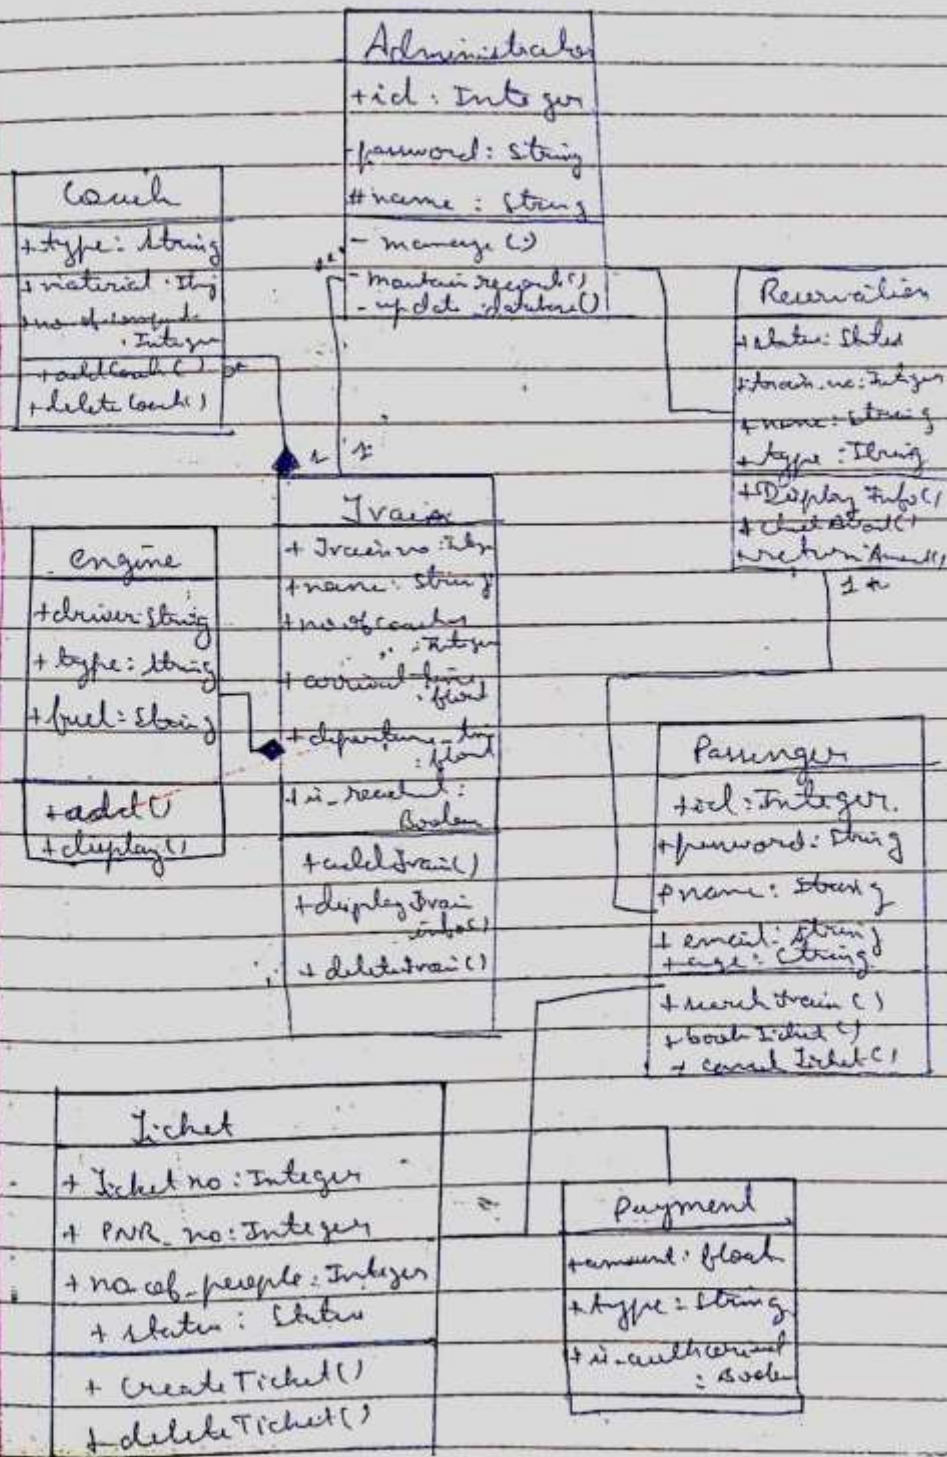 Administrator
+id : Integer
-password: String
#name : String
- manage ()
- maintain record()
- update_database()
Coach
+type: String
+material
: Integer
+addCoach()
+deleteCoach()
1
1
Reservation
+status: Status
+train_no: Integer
+name: String
+type: String
+Display Info()
1 *
engine
+driver: String
+type: String
+fuel: String
+add()
+display()
Train
+ Train no: Integer
+name: String
+no of coaches
: Integer
+ arrival_time
: float
+ departure_time
: float
+ is_reached :
Boolean
+addTrain()
+display Train
info()
+ deleteTrain()
Passenger
+id: Integer.
+password: String
name: String
+ email: String
+age: String
+searchtrain()
+bookTicket()
+ cancelTicket()
Ticket
+ Ticket no: Integer
+ PNR_no: Integer
+ no_of_people: Integer
+ status : Status
+ CreateTicket()
+ deleteTicket()
Payment
+amount: float
+type: String
: Boolean